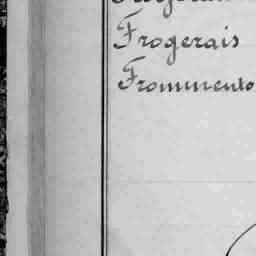 Frogerais
Frommento